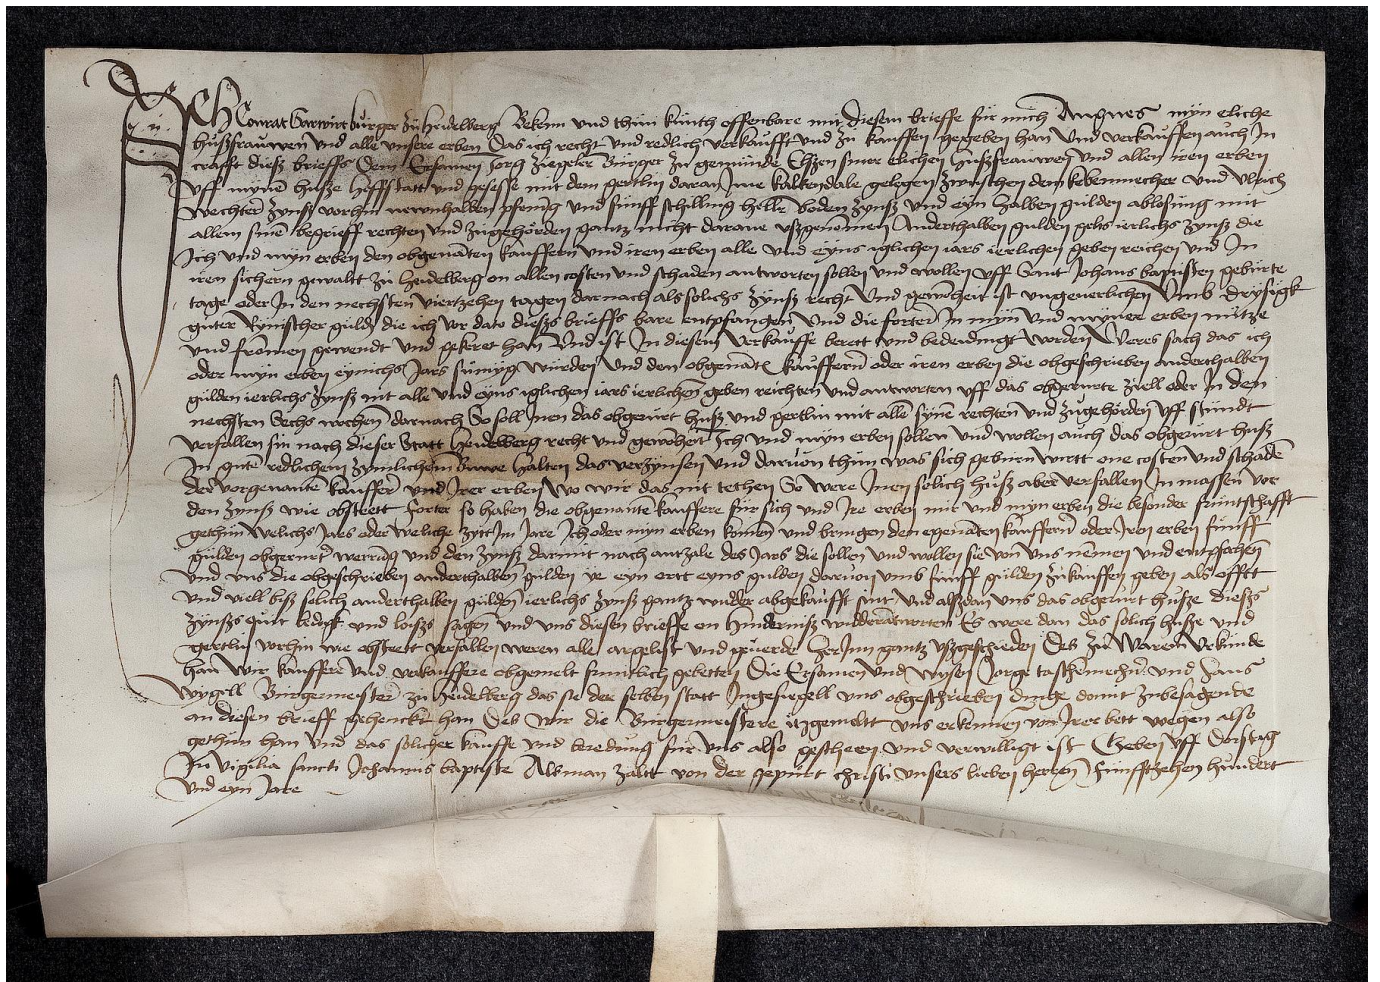 Ich Conrat Garwirt burger zu Heidelberg Bekenn und thun kunth offenbare mit diesem brieffe fur mich Anngnes myn eliche
hußfrauwen und alle unsere erben Das ich recht und redlich verkaufft und zu kauffen gegeben han Und verkauffen auch In
crafft dieß brieffs Dem Ersamen Jorg Ziegler Burger zu gemunde Elsen siner elichen hußfrauwen und allen iren erben
Uff mynem huße hoffstatt und gesesse mit dem gertlin daran Ime kaltendale gelegen zwuschen dem kebenmecher und Ulrich
wechter zynst vorhin nwnhalben pfennig und funff schilling heller boden zynß und eyn halben gulden ablosung mit
allem sinem begrieff rechten und zugehörden gantz nicht daran ußgenomen Anderthalben gulden gelts ierlichs zynß die
Ich und myn erben den obgenanten kauffern und iren erben alle und eyns iglichen iars ierlichen geben reichen und In
iren sichern gewallt zu Heidelberg on allen costen und schaden antworten sollen und wollen uff Sant Johans baptisten geburte
tage oder In den nechsten viertzehen tagen darnach als solichs zynß recht Und gewonheit ist ungeuerlichen Umb drysigk
guter Rynischer guld die ich vor dato dießs brieffs bare entpfangen Und die forter In myn und myner erben nutze
und fromen gewendt und gekeret han Und ist In diesem verkauffe berett und bededingt worden Weres sach das ich
oder myn erben eynichs Jars sumyg wurden Und den obgenanten kauffern oder iren erben die obgeschrieben anderthalben
gulden ierlichs zynß nit alle und eyns iglichen iars ierlichen geben reichten und antworten uff das obgerurte ziell oder In den
nechsten Sechs wochen darnach So soll Inen das obgerurt huß und gertlin mit allen syne rechten und zugehörden uff stundt
verfallen sin nach dieser Statt Heidelberg recht und gewonheit Ich und myn erben sollen und wollen auch das obgerurt huß
In gutem redlichem zymlichem Buwe halten das verzynsen und daruon thun was sich geburn wirtt one costen und schaden
der vorgenanten kauffere und Irer erben Wo wir das nit tethen So were Inen solich huß aber verfallen In massen vor
den zynß wie obsteett Forter so haben die obgenante kauffere fur sich und Ire erben mir und myn erben die besonder fruntschafft
gethun Welichs Jars oder weliche zytt Im Jare Ich oder myn erben komen und bringen den egenanten kauffern oder Iren erben funff
gulden obgerurter werrung und den zynß darmit nach antzale des Jars die sollen und wollen sie von uns nemen und entpfahen
Und uns die obgeschrieben anderthalben gulden ye eyn ertt eyns gulden daruon umb funff gulden zukauffen geben als offtt
und viell biß solich anderthalben gulden ierlichs zynß gantz widder abgekaufft sint Und alßdan uns das obgerurt huße dießs
zynßs quit ledigk und loißs sagen Und uns diesen brieffe on hinderniß widderantworten Es were dan das solich huße und
gertlin vorhin wie obsteett verfallen weren alle argelist und geuerde Her Inn gantz ußgescheiden Deß zu Warem Urkunde
han wir kauffere und verkauffere obgemelt fruntlich gebetten Die Ersamen und wysen Jorge taschemecher und Hans
Wygell Burgermeister zu Heidelberg das sie der selben statt Ingesiegell uns obgeschrieben dinge damit zubesagende
an diesen brieff gehenckt han Deß wir die Burgermeistere itzgemeltt uns erkennen von Irer bett wegen also
gethun han und das solicher kauffe und beredung fur uns also gescheen und verwilligt ist Geben uff Dorstag
In vigilia sancti Johannis baptiste Alsman zaltt von der gepurt christi unsers lieben herren Funfftzehen hundert
und eyn Jare